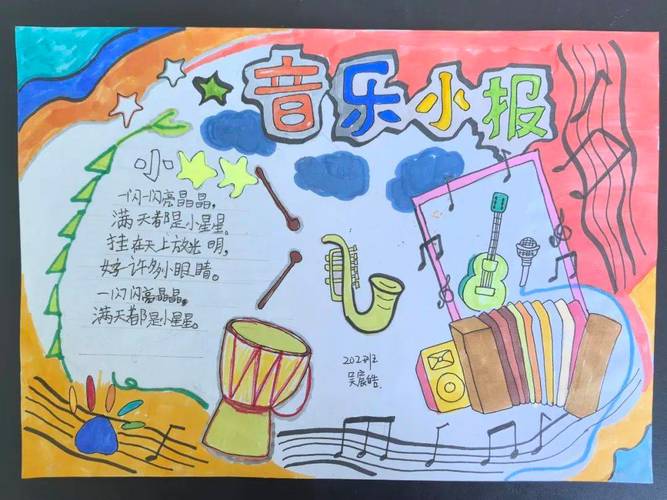 音乐小报
小
一闪一闪亮晶晶,
满天都是小星星。
挂在天上放光明,
好 许多小眼睛。
一闪一闪亮晶晶,
满天都是小星星。
吴宸皓